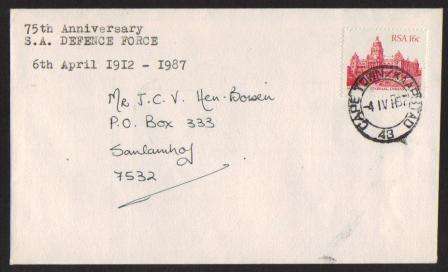 75th Anniversary
S.A. DEFENCE FORCE
6th April 1912 - 1987
RSA 16c
CAPE TOWN/KAAPSTAD
43
Mr J.C.V. Hen-Boisen
P.O. Box 333
Sanlamhof
7532